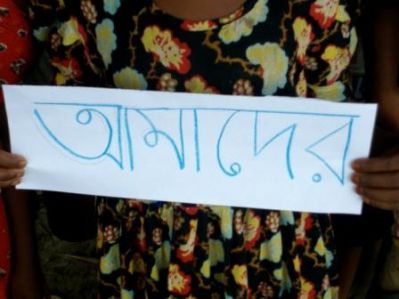 আমাদের